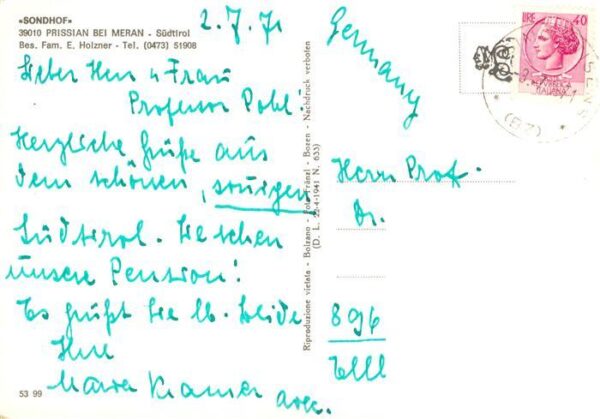 «SONDHOF»
39010 PRISSIAN BEI MERAN - Südtirol
Bes. Fam. E. Holzner - Tel. (0473) 51908
2.7.71
Lieber Herr u Frau
Professor Pohl.
Herzliche Grüße aus
dem schönen, sonnigen
Südtirol. Sie sehen
unsere Pension!
Es grüßt Sie lb. beide
Ihre
Kramer
53 99
Riproduzione vietata - Bolzano - Foto Fränzl - Bozen - Nachdruck verboten
(D. L. 22-4-1941 N. 633)
Germany
LIRE 40
ITALIANA
(BZ)
Herrn Prof.
Dr.
896